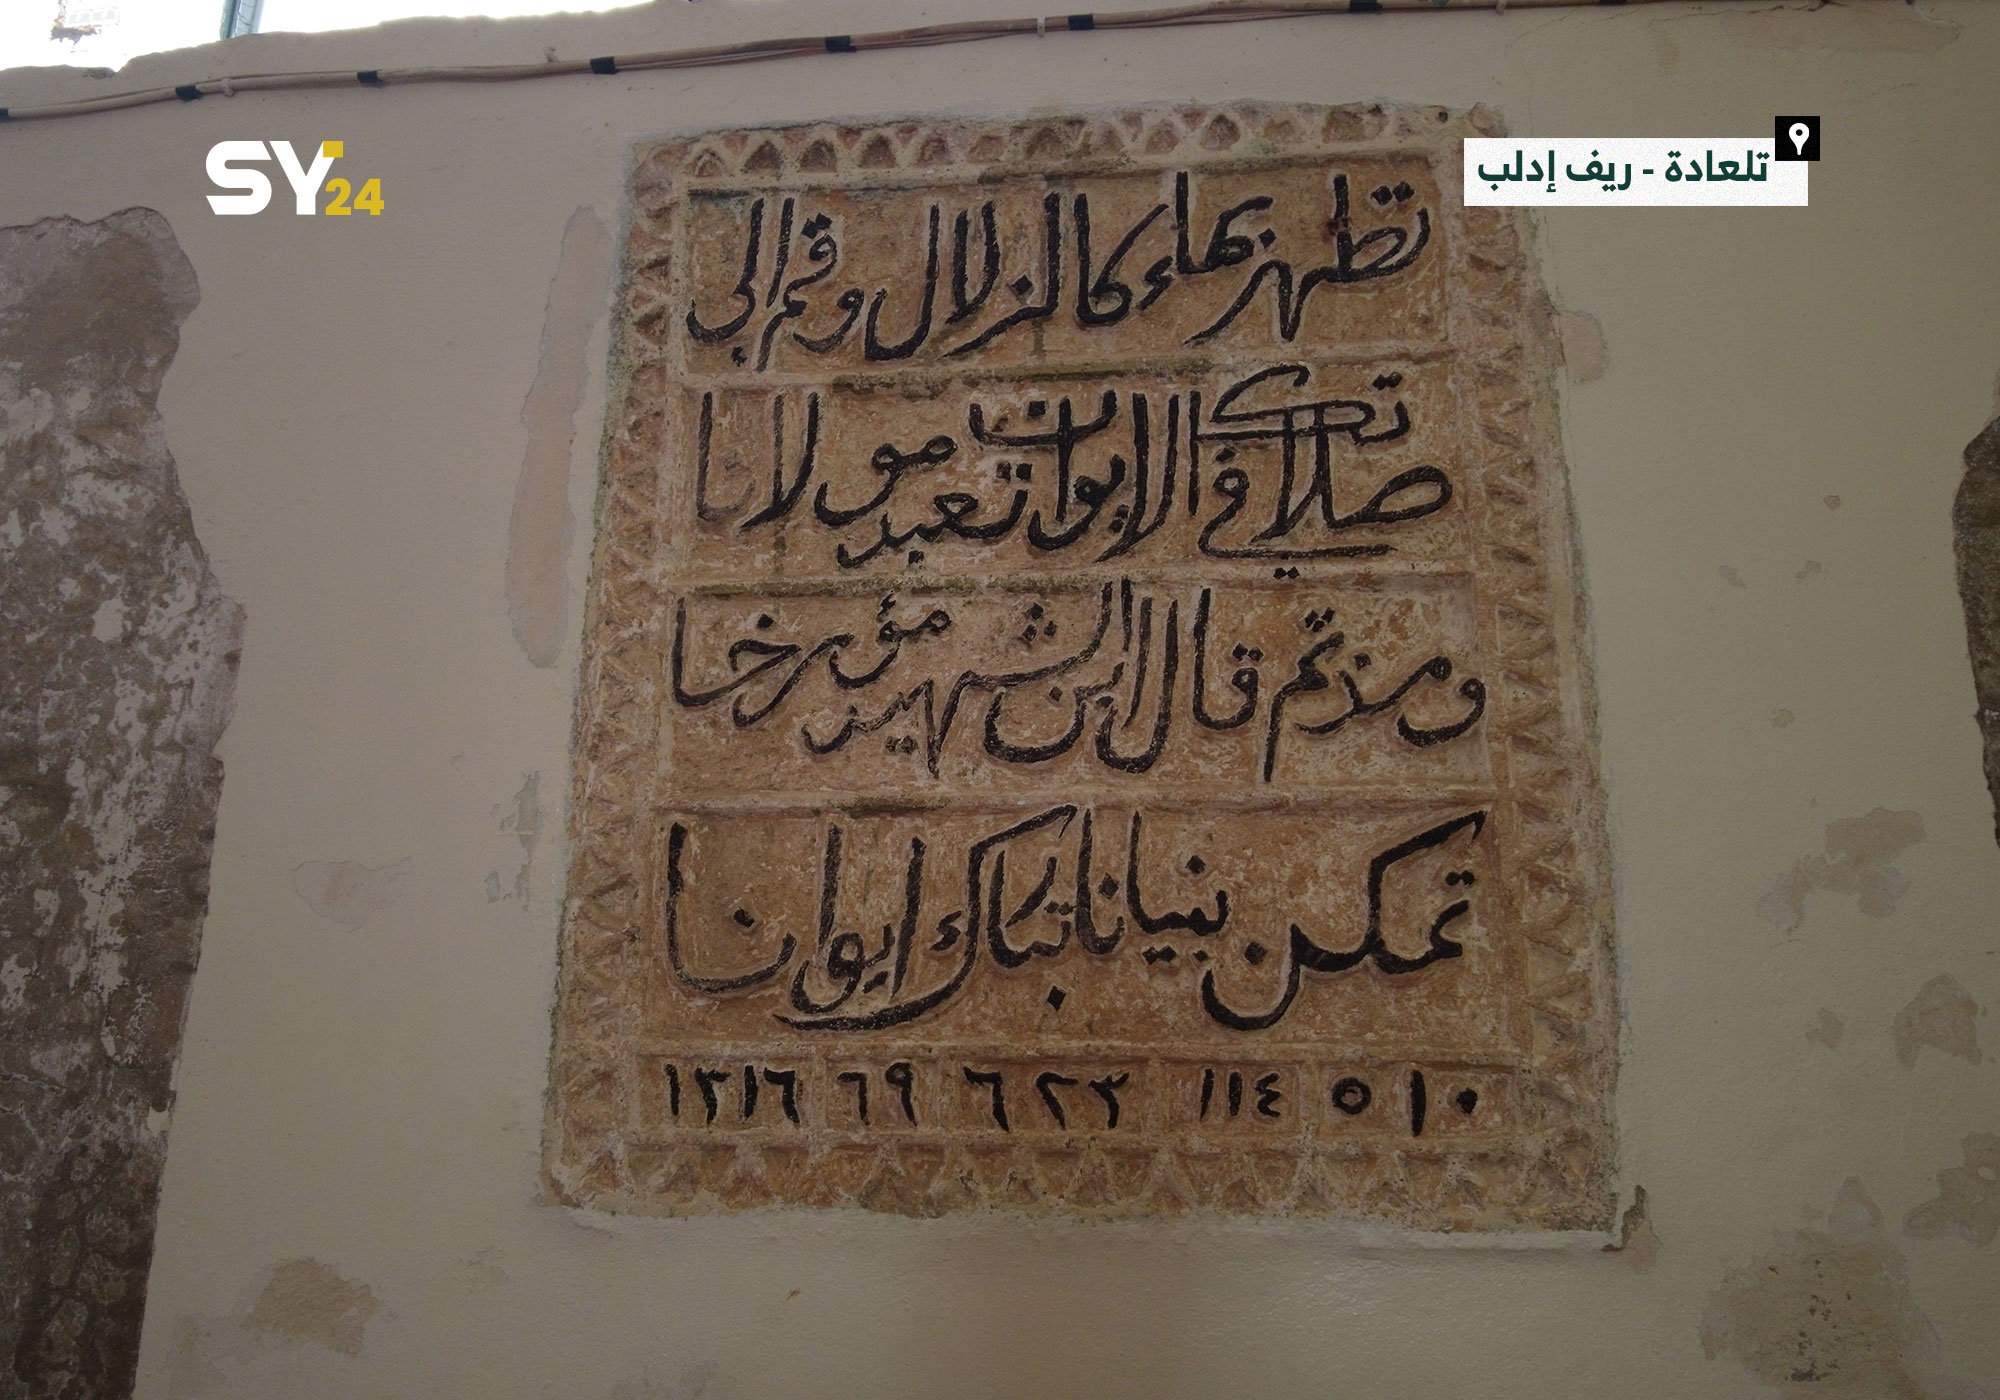 SY24
تلعادة - ريف إدلب
تطهر بماء كالزلال وقم الى
صلاتك في الايوان تعبد مولانا
ومذ تم قال ابن الشهيد مؤرخا
تمكن بنيانا تبارك ايوانا
٥١٠ ١١٤ ٦٢٣ ٦٩ ١٣١٦